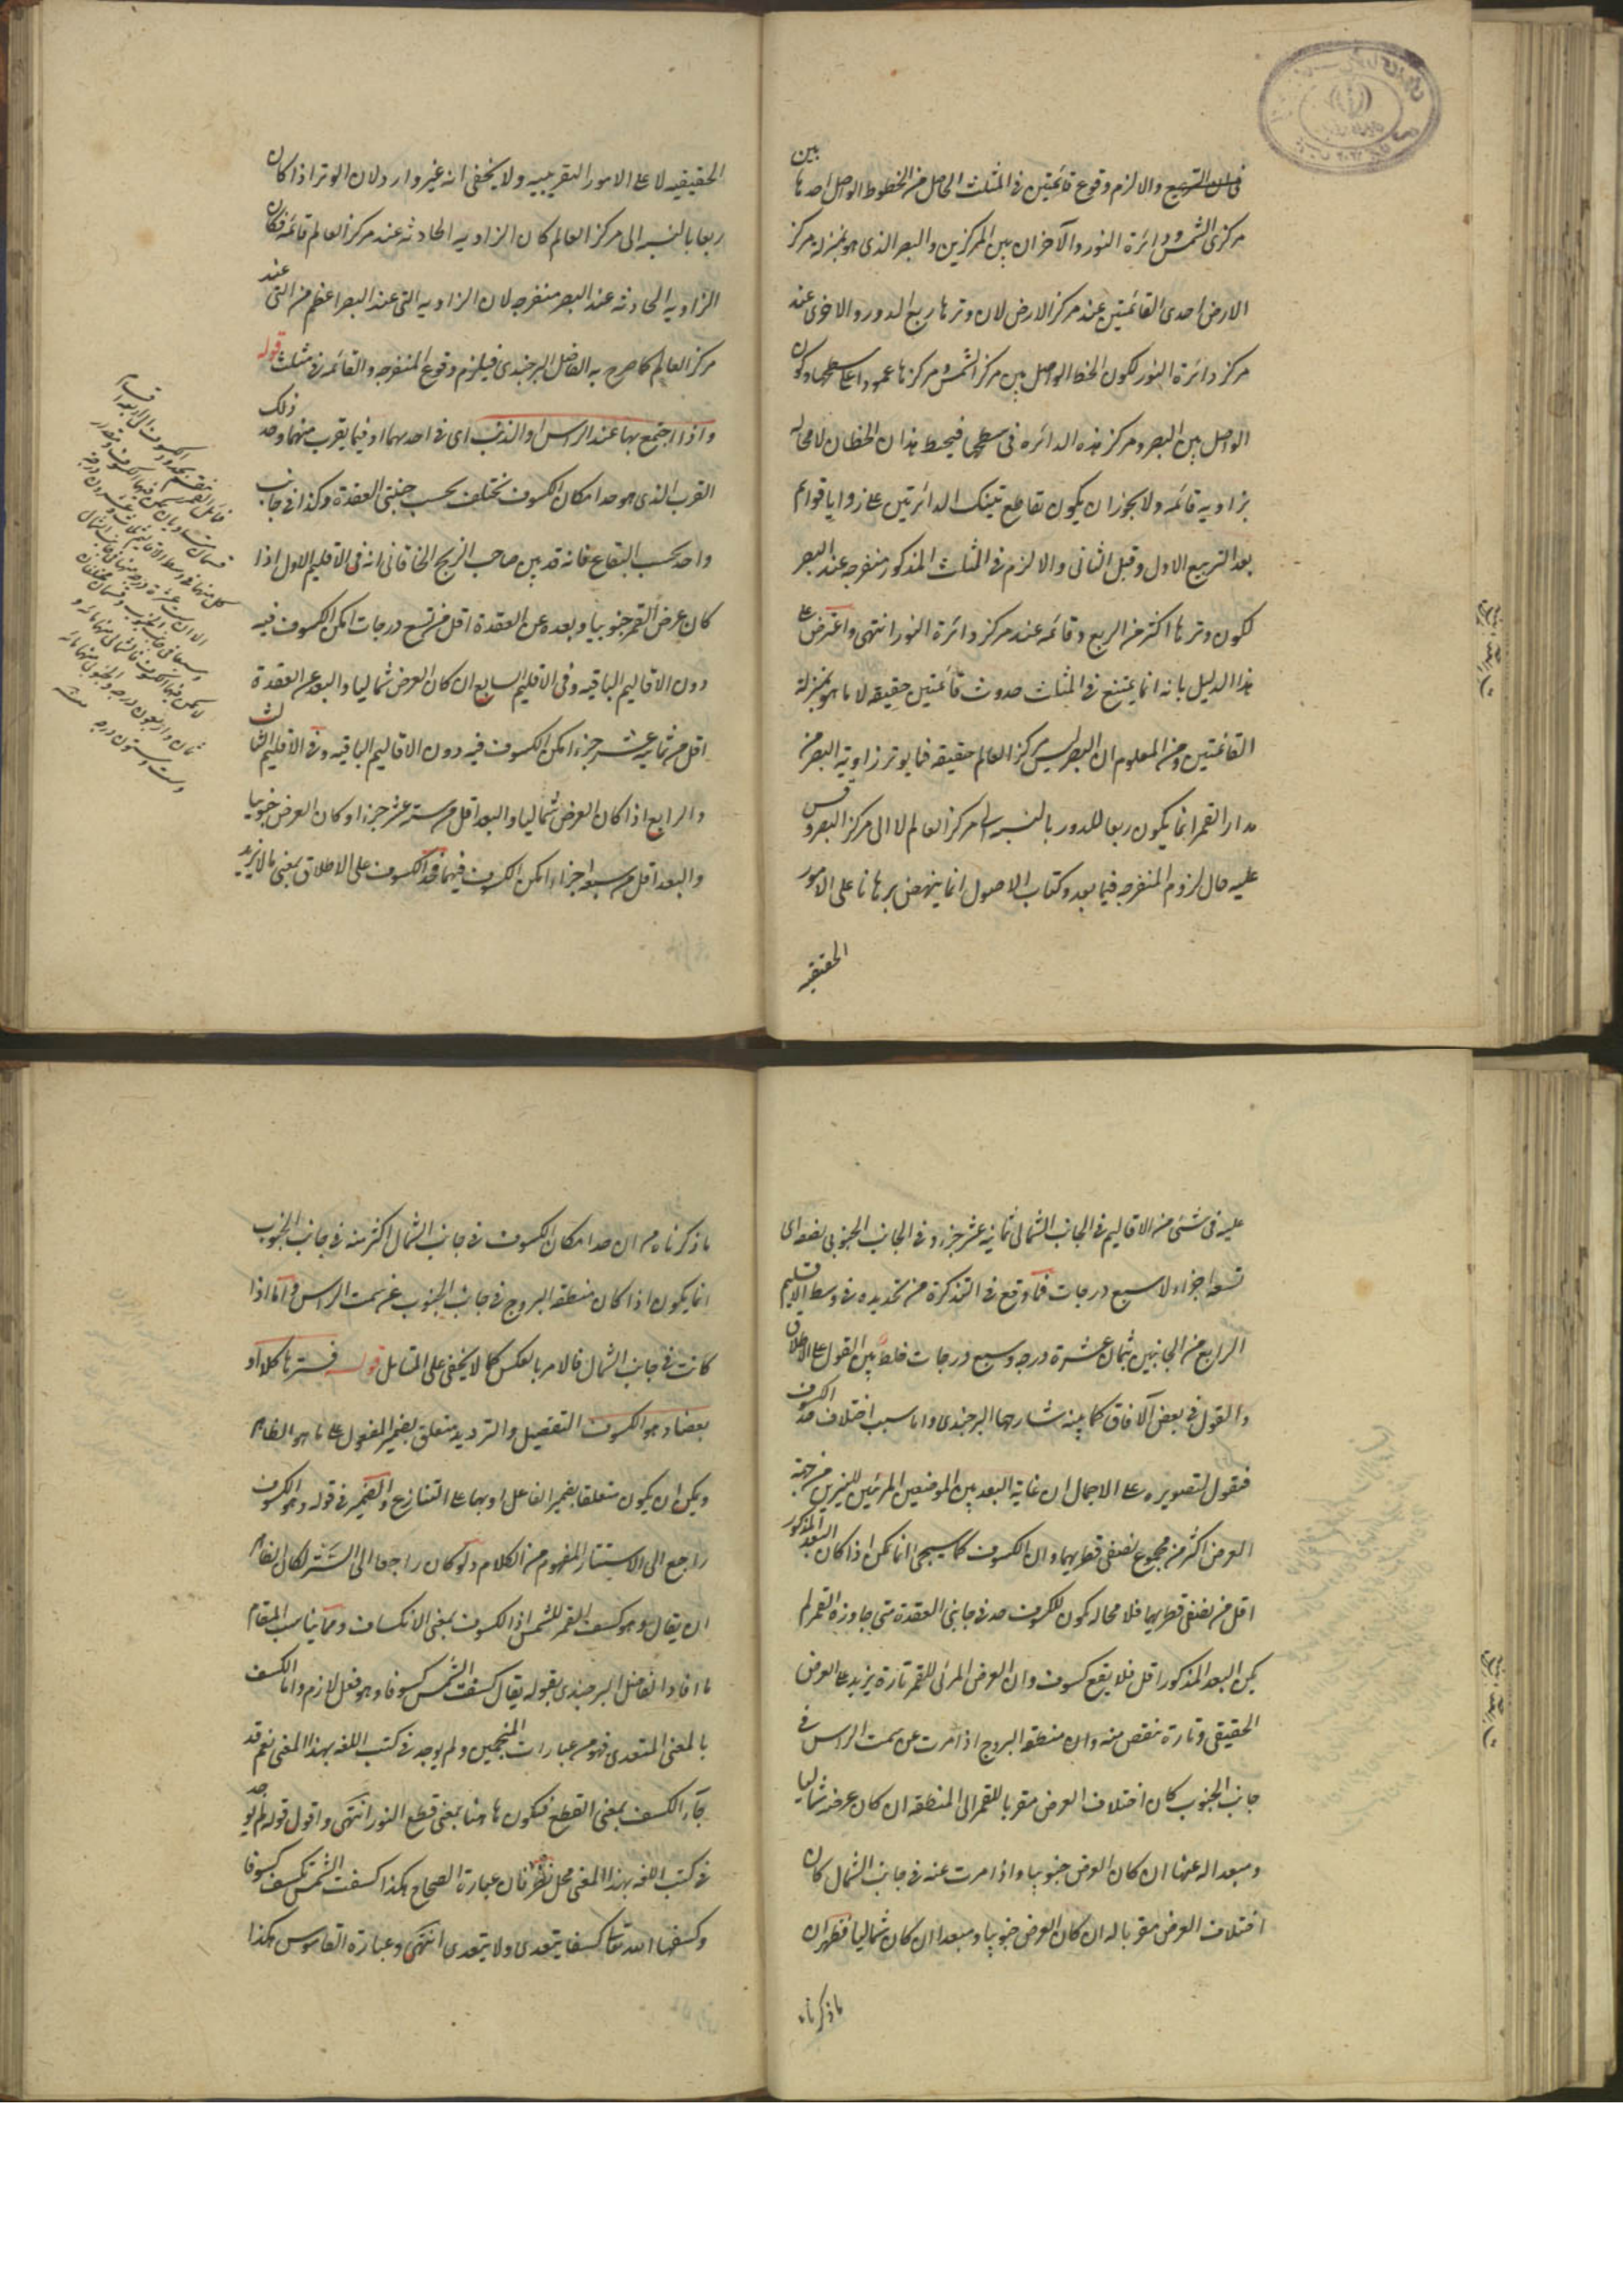 فى ان التربيع والا لزم وقوع قائمتين فى المثلث الحاصل من الخطوط الواصل احدها بين
مركزى الشمس ودائرة النور والآخران بين المركزين والبصر الذى هو بمنزلة مركز
الارض احدى القائمتين عند مركز الارض لان وترها ربع الدور والاخرى عند
مركز دائرة النور لكون الخط الواصل بين مركز الشمس ومركزها عمودا على سطحها وكون
الواصل بين البصر ومركز هذه الدائره فى سطحها فيحيط هذان الخطان لا محاله
بزاويه قائمه ولا يجوز ان يكون تقاطع تينك الدائرتين على زوايا قوائم
بعد التربيع الاول وقبل الثانى والا لزم فى المثلث المذكور منفرجه عند البصر
لكون وترها اكثر من الربع وقائمه عند مركز دائرة النور انتهى واعترض على
هذا الدليل بانه انما يمتنع فى المثلث حدوث قائمتين حقيقه لا ما هو بمنزلة
القائمتين ومن المعلوم ان البصر ليس مركز العالم حقيقه فما يوتر زاوية البصر من
مدار القمر انما يكون ربعا للدور بالنسبه الى مركز العالم لا الى مركز البصر وقس
عليه حال لزوم المنفرجه فيما بعد وكتاب الاصول انما ينهض برهانا على الامور
الحقيقيه
الحقيقيه لا على الامور التقريبيه ولا يخفى انه غير وارد لان الوتر اذا كان
ربعا بالنسبه الى مركز العالم كان الزاويه الحادثه عند مركز العالم قائمه فكان
الزاويه الحادثه عند البصر منفرجه لان الزاويه التى عند البصر اعظم من التى عند
مركز العالم كما صرح به الفاضل البرجندى فيلزم وقوع المنفرجه والقائمه فى مثلث قوله
واذا اجتمع بها عند الراس او الذنب اى فى احدهما او فيما يقرب منهما وحد ذلك
القرب الذى هو حد امكان الكسوف تختلف بحسب جنبتى العقدة وكذا فى جانب
واحد بحسب البقاع فانه قد بين صاحب الزيج الخاقانى انه فى الاقليم الاول اذا
كان عرض القمر جنوبيا وبعده عن العقدة اقل من تسع درجات امكن الكسوف فيه
دون الاقاليم الباقيه وفى الاقليم السابع ان كان العرض شماليا والبعد عن العقدة
اقل من ثمانيه عشر جزء امكن الكسوف فيه دون الاقاليم الباقيه وفى الاقليم الثالث
والرابع اذا كان العرض شماليا والبعد اقل من سته عشر جزءا او كان العرض جنوبيا
والبعد اقل من سبعه اجزاء امكن الكسوف فيهما فحد الكسوف على الاطلاق بمعنى ما لا يزيد
عليه فى شئ من الاقاليم فى الجانب الشمالى ثمانيه عشر جزء وفى الجانب الجنوبى
تسعه اجزاء لا سبع درجات فما وقع فى التذكرة من تحديده فى وسط الاقليم
الرابع من الجانبين بثمان عشرة درجه وسبع درجات خلط بين القول على الاطلاق
والقول فى بعض الآفاق كما بينه شارحها البرجندى واما سبب اختلاف حد الكسوف
فنقول لتصويره على الاجمال ان غاية البعد بين الموضعين المرئيين للنيرين من جهة
العرض اكثر من مجموع نصفى قطريهما وان الكسوف كما سيجئ انما يمكن اذا كان البعد المذكور
اقل من نصفى قطريهما فلا محاله يكون للكسوف حد فى جانبى العقدة متى جاوزه القمر لم
يكن البعد المذكور اقل فلا يقع كسوف وان العرض المرئى للقمر تارة يزيد على العرض
الحقيقى وتارة ينقص منه وان منطقه البروج اذا مرت عن سمت الراس فى
جانب الجنوب كان اختلاف العرض مقربا للقمر الى المنطقه ان كان عرضه شماليا
ومبعدا له عنها ان كان العرض جنوبيا واذا مرت عنه فى جانب الشمال كان
اختلاف العرض مقربا له ان كان العرض جنوبيا ومبعدا ان كان شماليا فظهر ان
ما ذكرناه
ما ذكرناه من ان حد امكان الكسوف فى جانب الشمال اكثر منه فى جانب الجنوب
انما يكون اذا كان منطقه البروج فى جانب الجنوب عن سمت الراس واما اذا
كانت فى جانب الشمال فالامر بالعكس كما لا يخفى على المتامل قوله فسترها كلا او
بعضا وهو الكسوف التفصيل والترديد متعلق بضمير المفعول على ما هو الظاهر
ويمكن ان يكون متعلقا بضمير الفاعل او بهما على التنازع والضمير فى قوله وهو الكسوف
راجع الى الاستتار المفهوم من الكلام ولو كان راجعا الى الستر لكان الظاهر
ان يقال وهو كسف القمر للشمس اذ الكسوف بمعنى الانكساف ومما يناسب المقام
ما افاد الفاضل البرجندى بقوله يقال كسفت الشمس كسوفا وهو فعل لازم واما الكسف
بالمعنى المتعدى فهو من عبارات المنجمين ولم يوجد فى كتب اللغه بهذا المعنى نعم قد
جآء الكسف بمعنى القطع فيكون هاهنا بمعنى قطع النور انتهى واقول قوله لم يوجد
فى كتب اللغه بهذا المعنى محل نظر فان عبارة الصحاح هكذا كسفت الشمس تكسف كسوفا
وكسفها الله تعالى كسفا يتعدى ولا يتعدى انتهى وعبارة القاموس هكذا